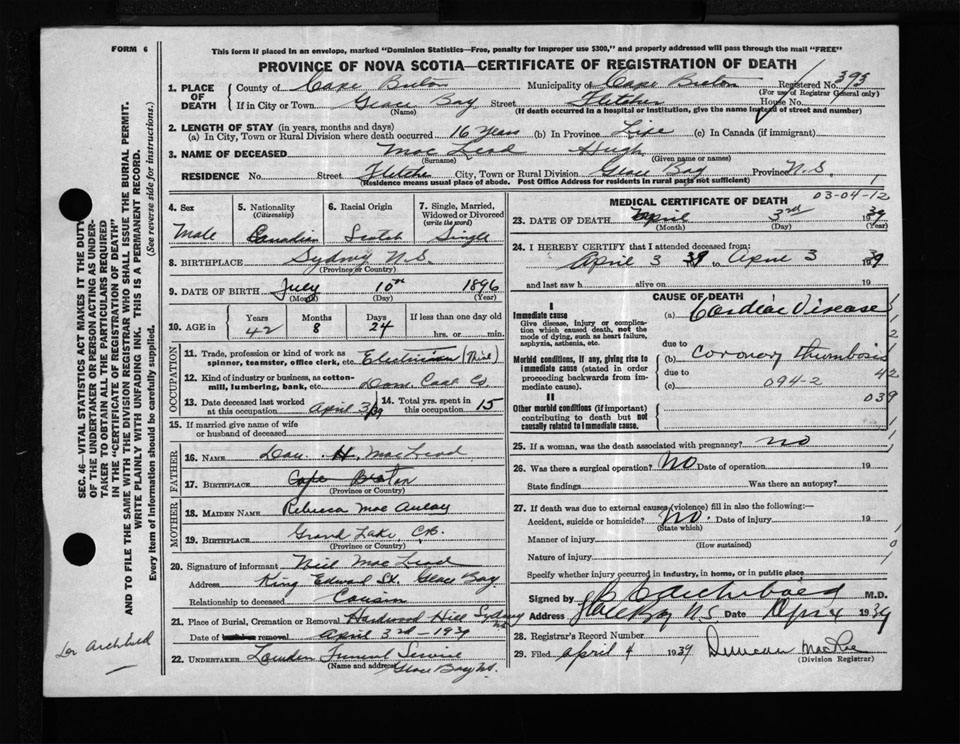 FORM 6
This form if placed in an envelope, marked "Dominion Statistics—Free, penalty for improper use $300," and properly addressed will pass through the mail "FREE"
PROVINCE OF NOVA SCOTIA—CERTIFICATE OF REGISTRATION OF DEATH
SEC. 46—VITAL STATISTICS ACT MAKES IT THE DUTY
OF THE UNDERTAKER OR PERSON ACTING AS UNDER-
TAKER TO OBTAIN ALL THE PARTICULARS REQUIRED
IN THE "CERTIFICATE OF REGISTRATION OF DEATH"
AND TO FILE THE SAME WITH THE DIVISION REGISTRAR WHO SHALL ISSUE THE BURIAL PERMIT.
WRITE PLAINLY WITH UNFADING INK. THIS IS A PERMANENT RECORD.
Every item of information should be carefully supplied. (See reverse side for instructions.)
1. PLACE OF DEATH County of Cape Breton Municipality of Cape Breton Registered No. 395
(For use of Registrar General only)
If in City or Town Glace Bay Street Fletcher House No.
(Name) (If death occurred in a hospital or institution, give the name instead of street and number)
2. LENGTH OF STAY (in years, months and days)
(a) In City, Town or Rural Division where death occurred 16 Years (b) In Province Life (c) In Canada (if immigrant)
3. NAME OF DECEASED Mac Leod Hugh
(Surname) (Given name or names)
RESIDENCE No. Street Fletcher City, Town or Rural Division Glace Bay Province N.S. 1
(Residence means usual place of abode. Post Office Address for residents in rural parts not sufficient)
4. Sex Male
5. Nationality (Citizenship) Canadian
6. Racial Origin Scotch
7. Single, Married, Widowed or Divorced (write the word) Single
8. BIRTHPLACE Sydney N.S.
(Province or Country)
9. DATE OF BIRTH July 10th 1896
(Month) (Day) (Year)
10. AGE in Years 42 Months 8 Days 24 If less than one day old hrs. or min.
OCCUPATION
11. Trade, profession or kind of work as spinner, teamster, office clerk, etc. Electrician (Mine)
12. Kind of industry or business, as cotton-mill, lumbering, bank, etc. Dom. Coal Co
13. Date deceased last worked at this occupation April 3/39 14. Total yrs. spent in this occupation 15
15. If married give name of wife or husband of deceased
FATHER
16. NAME Dan. H. MacLeod
17. BIRTHPLACE Cape Breton
(Province or Country)
MOTHER
18. MAIDEN NAME Rebecca Mac Aulay
19. BIRTHPLACE Grand Lake, C.B.
(Province or Country)
20. Signature of informant Neil MacLeod
Address King Edward St. Glace Bay
Relationship to deceased Cousin
21. Place of Burial, Cremation or Removal Hardwood Hill Sydney NS
Date of burial or removal April 3rd - 1939
22. UNDERTAKER Funeral Service
(Name and address) Glace Bay NS.
MEDICAL CERTIFICATE OF DEATH 03-04-12
23. DATE OF DEATH April 3rd 1939
(Month) (Day) (Year)
24. I HEREBY CERTIFY that I attended deceased from:
April 3 1939 to April 3 1939
and last saw h alive on 19
CAUSE OF DEATH
I
Immediate cause (a) Cardiac Disease
Give disease, injury or complication which caused death, not the mode of dying, such as heart failure, asphyxia, asthenia, etc.
due to
Morbid conditions, if any, giving rise to immediate cause (stated in order proceeding backwards from immediate cause). (b) Coronary Thumbosis
due to 42
(c) 094-2
039
II
Other morbid conditions (if important) contributing to death but not causally related to immediate cause.
25. If a woman, was the death associated with pregnancy? no
26. Was there a surgical operation? No Date of operation 19
State findings Was there an autopsy?
27. If death was due to external causes (violence) fill in also the following:—
Accident, suicide or homicide? No. Date of injury 19
(State which)
Manner of injury
(How sustained)
Nature of injury
Specify whether injury occurred in industry, in home, or in public place
Signed by M.D.
Address Glace Bay N.S. Date Apr 4 1939
28. Registrar's Record Number
29. Filed April 4 1939 Duncan MacRae
(Division Registrar)
for Archibald